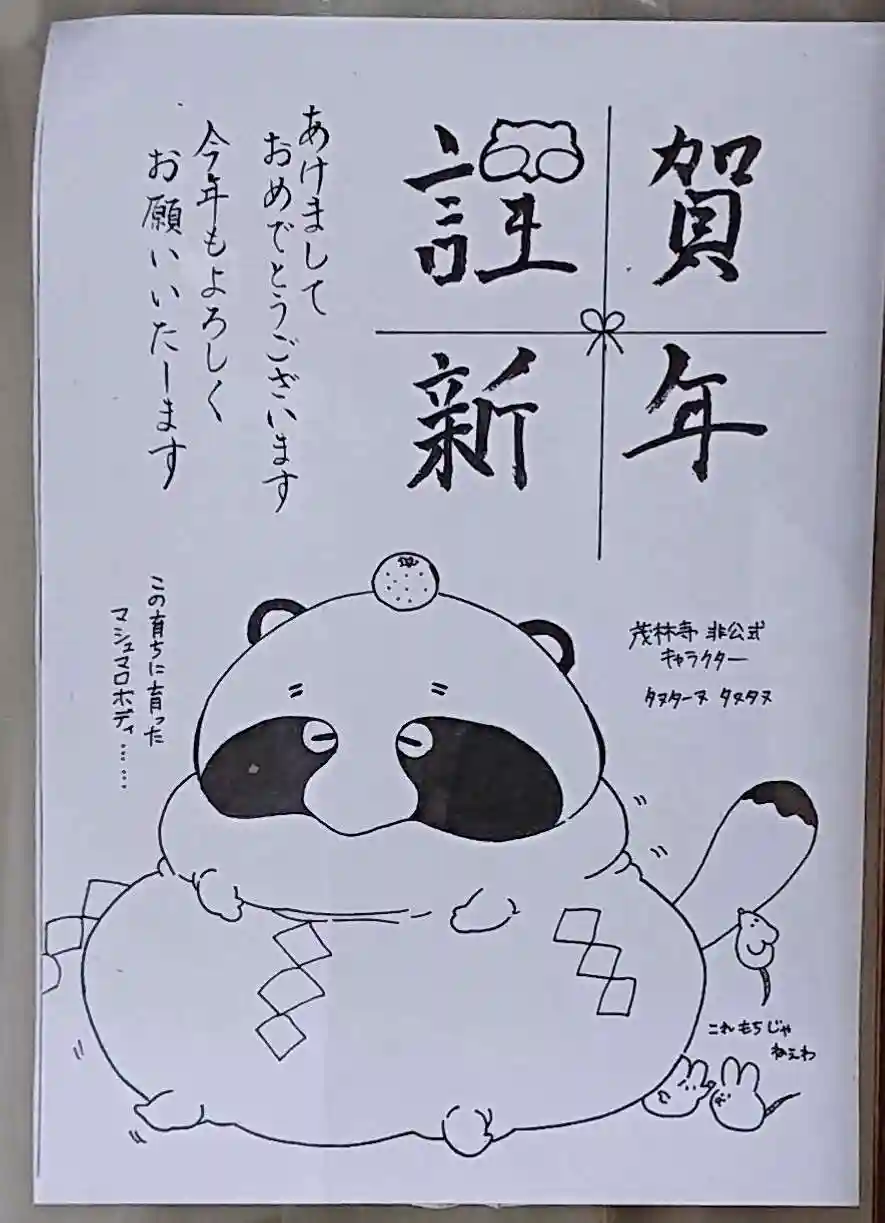 謹賀
新年
あけまして
おめでとうございます
今年もよろしく
お願いいたします
茂林寺 非公式
キャラクター
タヌターヌ タヌタヌ
この育ちに育った
マシュマロボディ……
これもちじゃ
ねぇわ